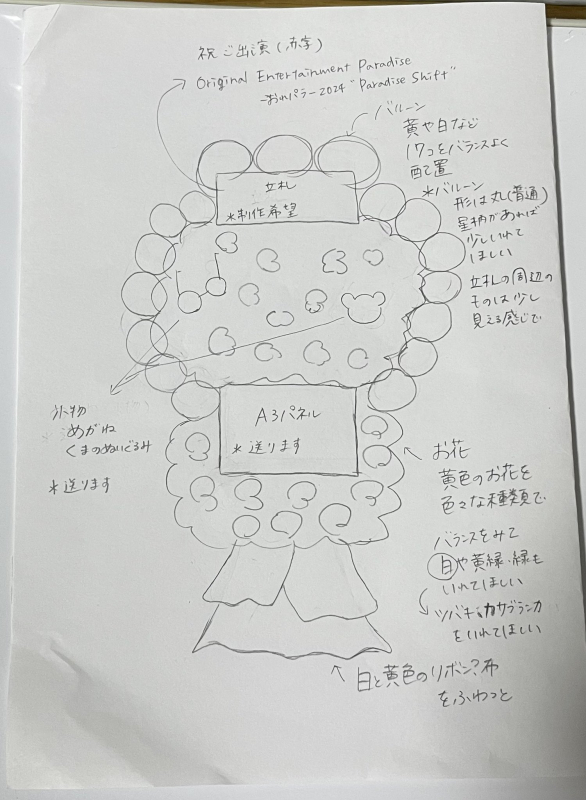 祝ご出演(赤字)
Original Entertainment Paradise
-おれパラ-2024 "Paradise Shift"
バルーン
黄や白など
17コをバランスよく
配置
*バルーン
形は丸(普通)
星柄があれば
少しいれて
ほしい
立札の周辺の
ものは少し
見える感じで
立札
*制作希望
A3パネル
*送ります
小物
めがね
くまのぬいぐるみ
*送ります
お花
黄色のお花を
色々な種類で
バランスをみて
白や黄緑・緑も
いれてほしい
ツバキ、カサブランカ
をいれてほしい
白と黄色のリボン?布
をふわっと